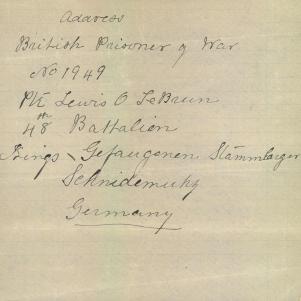 Address
British Prisoner of War
No 1949
Pte Lewis O LeBrun
48th Battalion
Kriegs Gefangenen Stammlarger
Schnidemuhl
Germany